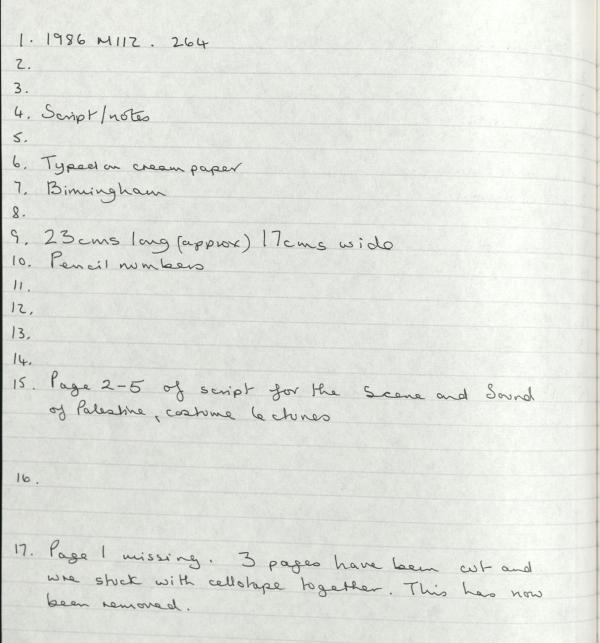 1. 1986 M112. 264
2.
3.
4. Script/notes
5.
6. Typed on cream paper
7. Birmingham
8.
9. 23cms long (approx) 17cms wide
10. Pencil numbers
11.
12.
13.
14.
15. Page 2-5 of script for the Scene and Sound
of Palestine, costume lectures
16.
17. Page 1 missing. 3 pages have been cut and
wre stuck with cellotape together. This has now
been removed.